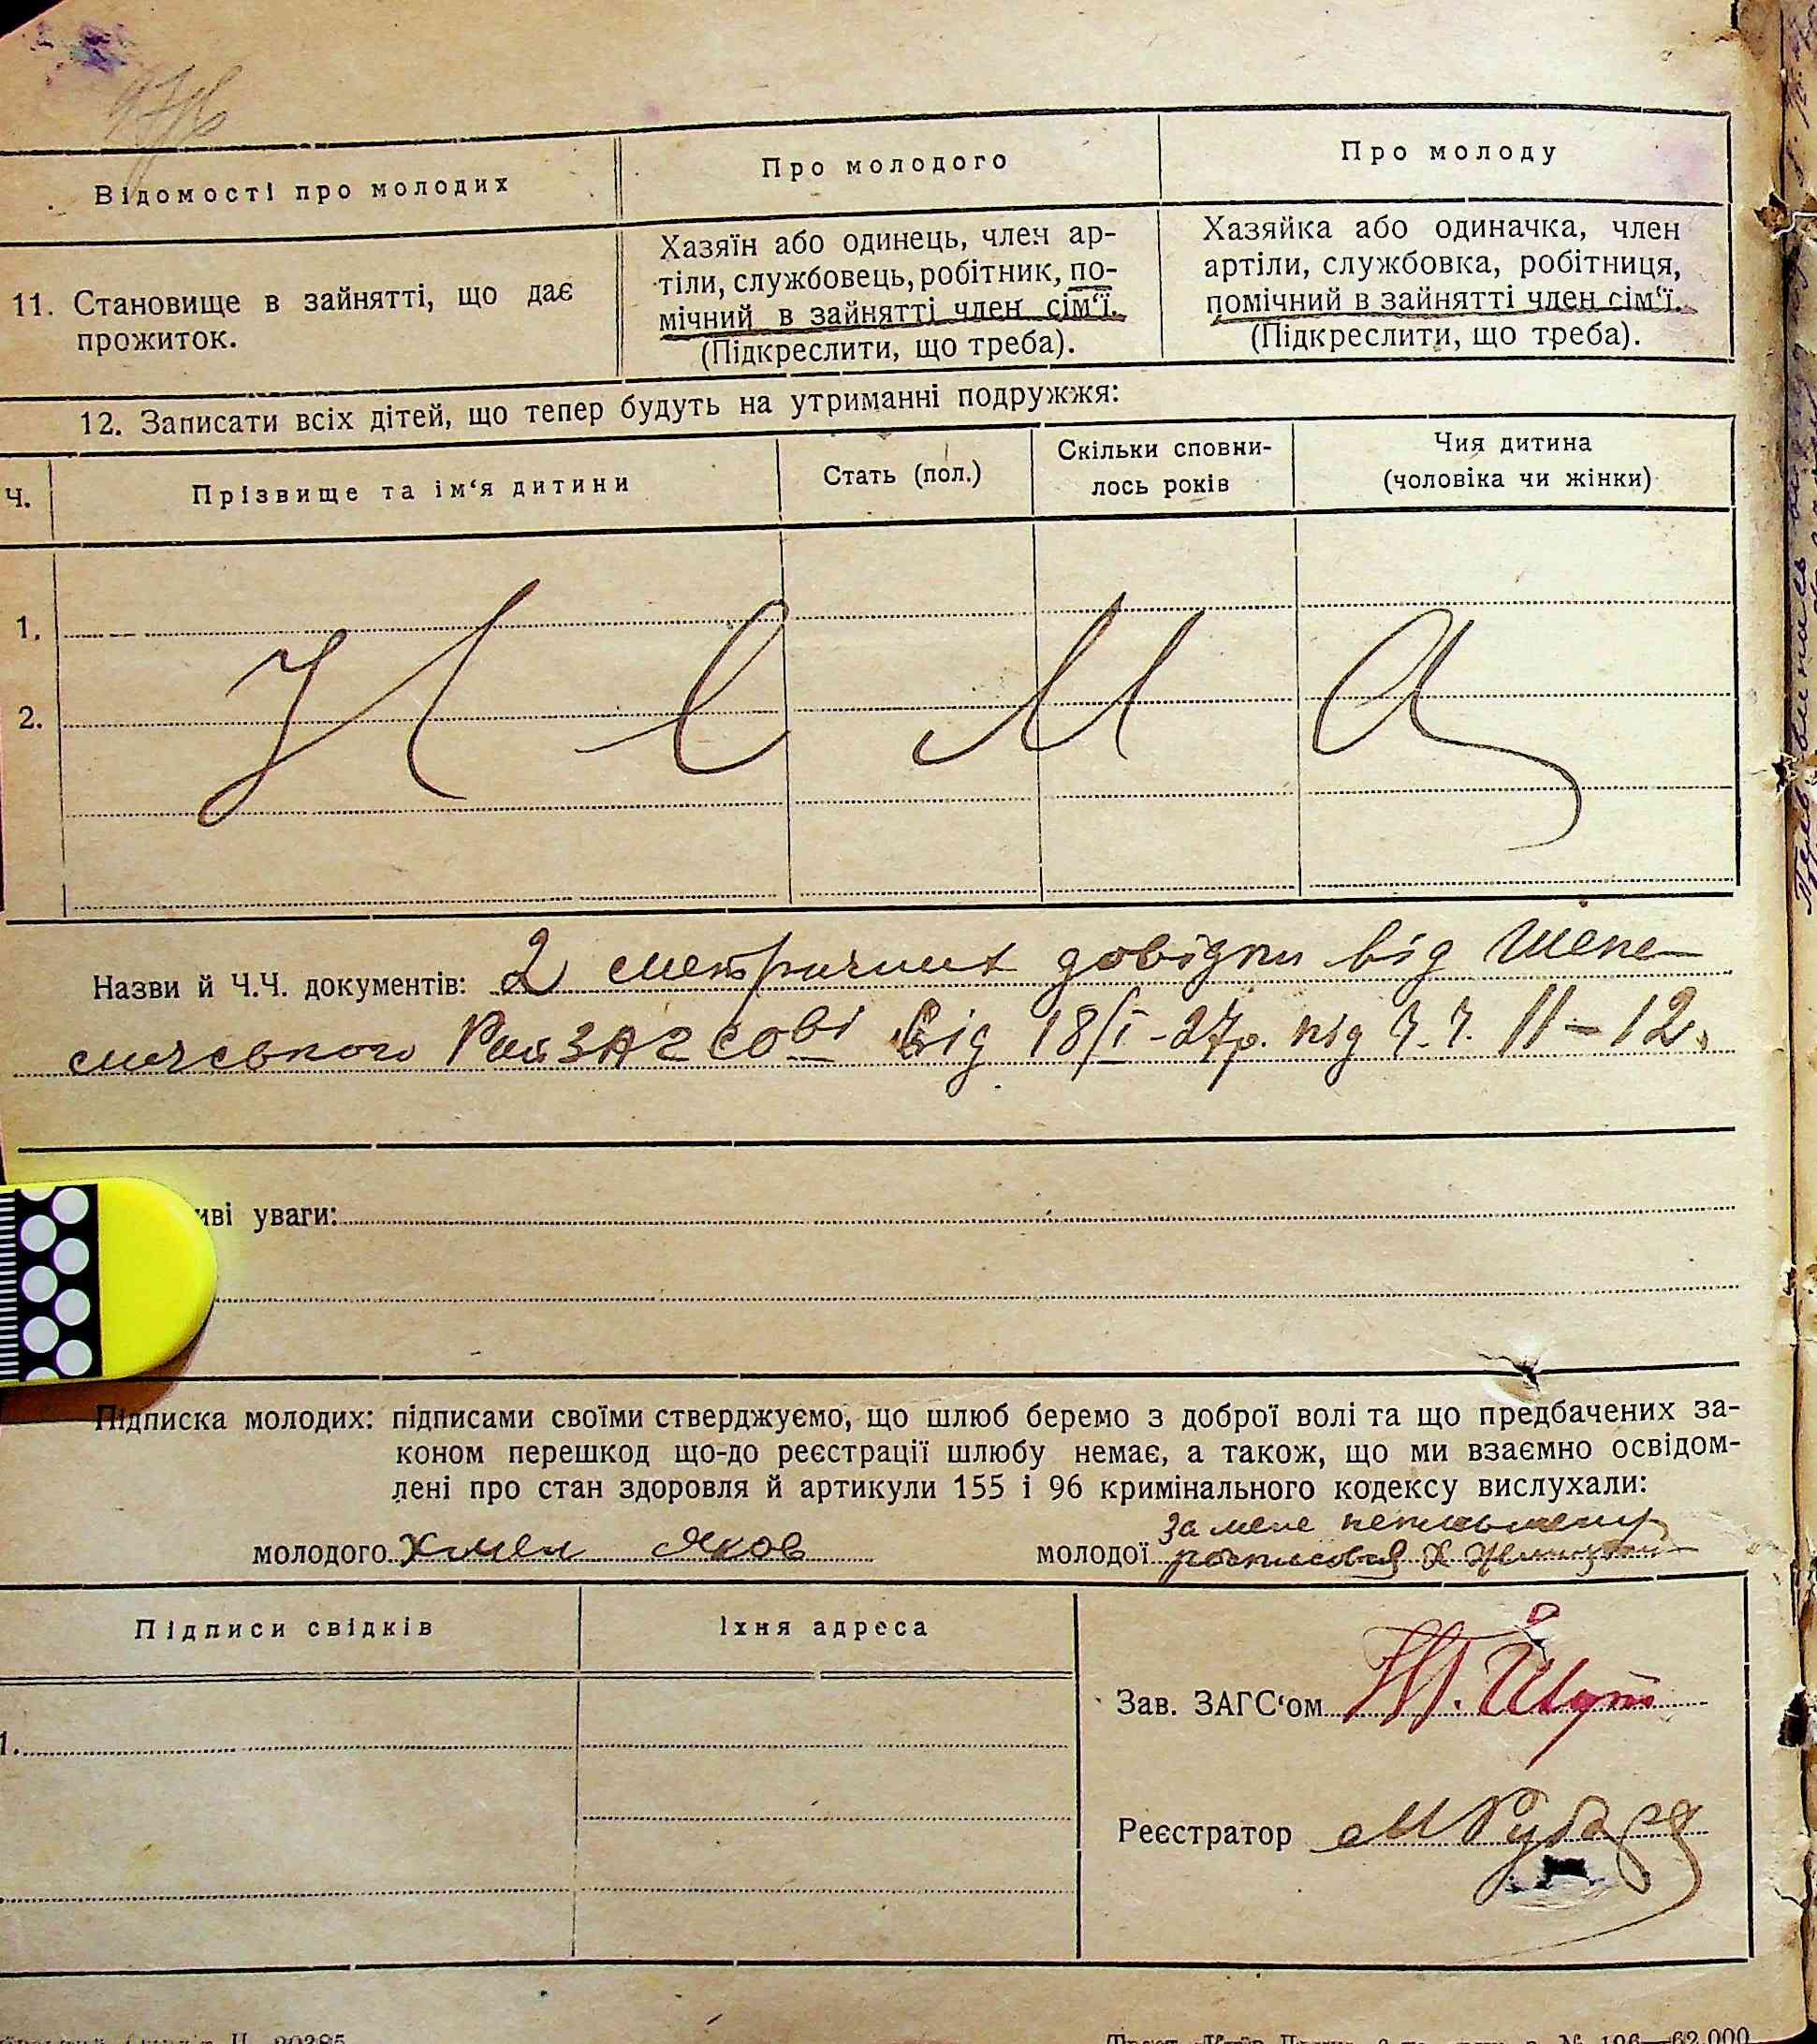 Відомості про молодих
Про молодого
Про молоду
11. Становище в зайнятті, що дає
прожиток.
Хазяїн або одинець, член ар-
тіли, службовець, робітник, по-
мічний в зайнятті член сім‘ї.
(Підкреслити, що треба).
Хазяйка або одиначка, член
артіли, службовка, робітниця,
помічний в зайнятті член сім‘ї.
(Підкреслити, що треба).
12. Записати всіх дітей, що тепер будуть на утриманні подружжя:
Ч.
Прізвище та ім‘я дитини
Стать (пол.)
Скільки сповни-
лось років
Чия дитина
(чоловіка чи жінки)
1.
2.
Нема
Назви й Ч.Ч. документів: 2 метричних довідки від Шепе-
РайЗАГСові від 18/I-27р. під Ч.Ч. 11-12.
иві уваги:
Підписка молодих: підписами своїми стверджуємо, що шлюб беремо з доброї волі та що предбачених за-
коном перешкод що-до реєстрації шлюбу немає, а також, що ми взаємно освідом-
лені про стан здоровля й артикули 155 і 96 кримінального кодексу вислухали:
молодого Хмел Яков
за мене неписьмену
молодої росписовся Х
Підписи свідків
Їхня адреса
1.
Зав. ЗАГС‘ом
Реєстратор